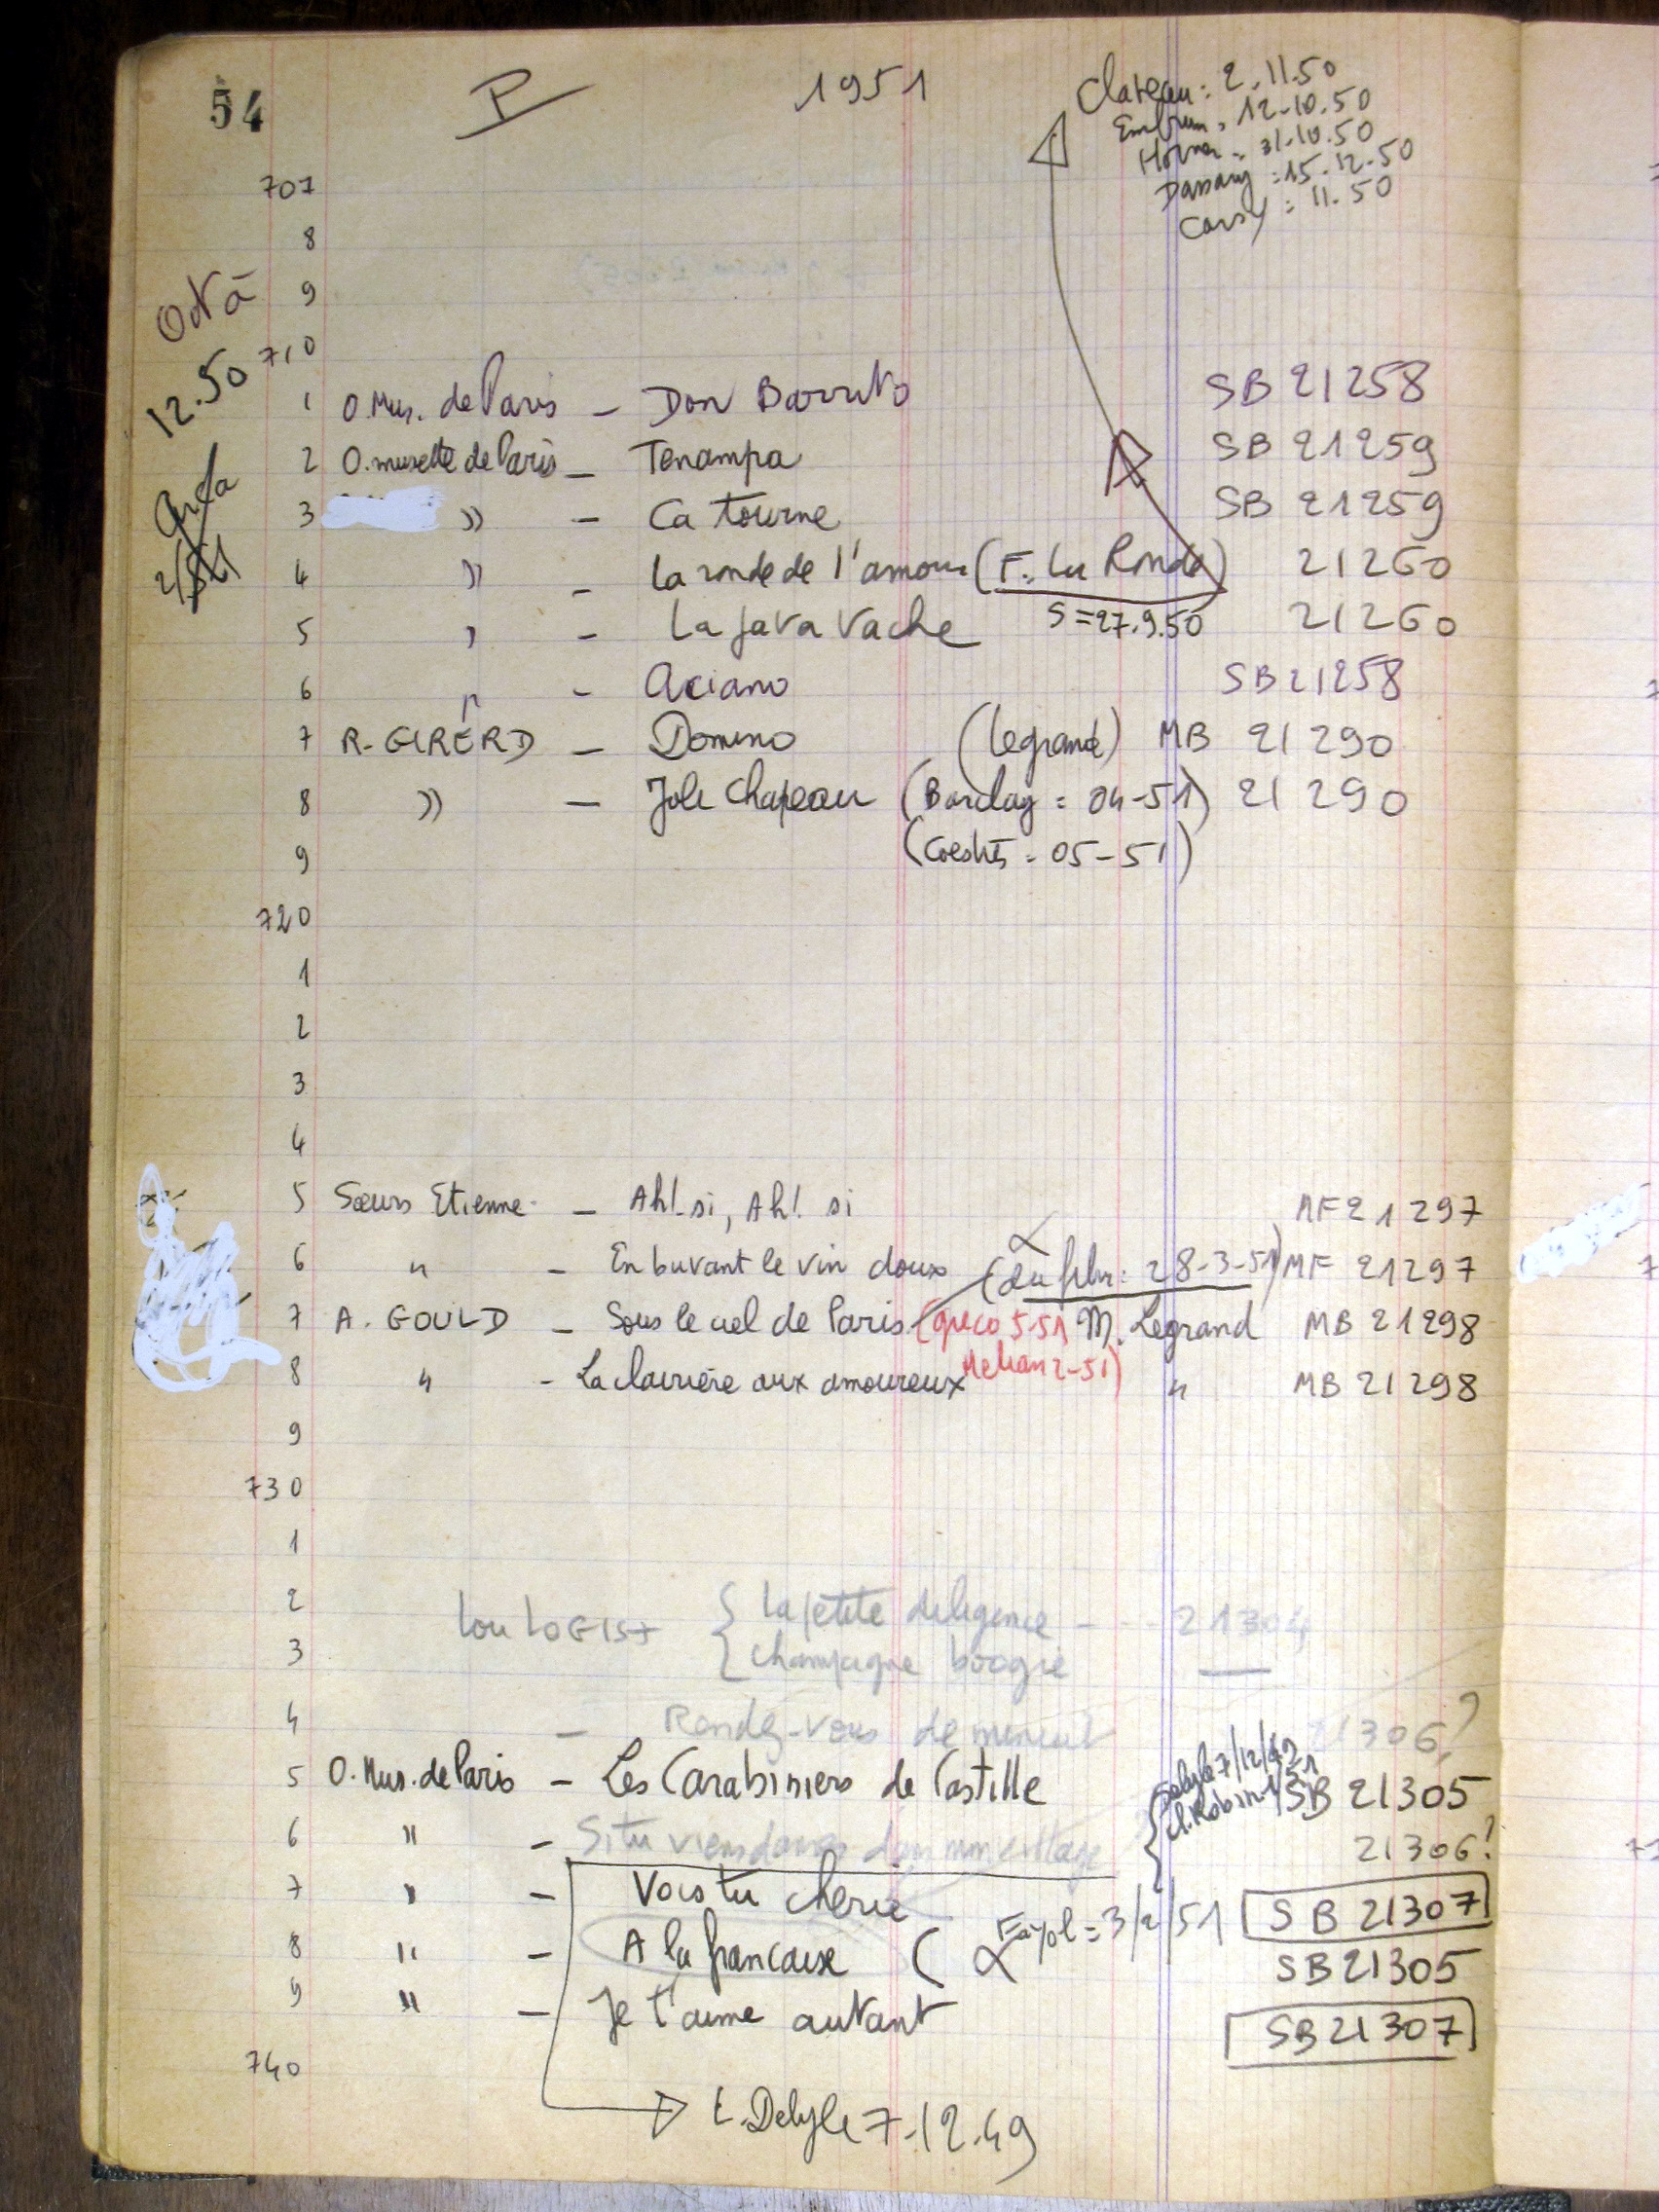 54 P 1951
Clareau : 2.11.50
Embrun = 12-10.50
Horner = 31-10.50
Dassary = 15.12.50
Carsy = 11.50
707
8
9
Oct à
12.50
710
1 O. Mus. de Paris - Don Barrito SB 21258
2 O. musette de Paris - Tenampa SB 21259
3 " - Ca tourne SB 21259
4 " - La ronde de l'amour (F. La Ronde) 21260
5 " - La Java Vache S=27.9.50 21260
6 " - Aciano SB 21258
7 R. GIRERD - Domino (Legrand) MB 21290
8 " - Joli Chapeau (Barclay = 04-51) 21290
9 (Coestis = 05-51)
720
1
2
3
4
5 Sœurs Etienne - Ah! si, Ah! si MF 21297
6 " - En buvant le vin doux (du film : 28-3-51) MF 21297
7 A. GOULD - Sous le ciel de Paris (greco 5-51 M. Legrand MB 21298
8 " - La clairière aux amoureux Mehan 2-51) " MB 21298
9
730
1
2 Lou LOGIST { La petite diligence --- 21304
3 { Champagne boogie
4 - Rendez-vous de minuit 21306?
Delyle 7/12/49
Cl. Robin 1/51
5 O. Mus. de Paris - Les Carabiniers de Castille SB 21305
6 " - Si tu viens danser dans mon village 21306?
7 " - Vois tu cherie SB 21307
8 " - A la francaise ( Fayol = 3/2/51 SB 21305
9 " - Je t'aime autant SB 21307
740
L. Delyle 7.12.49